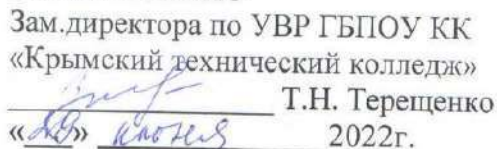 Зам.директора по УВР ГБПОУ КК
«Крымский технический колледж»
Т.Н. Терещенко
«29» июня 2022г.